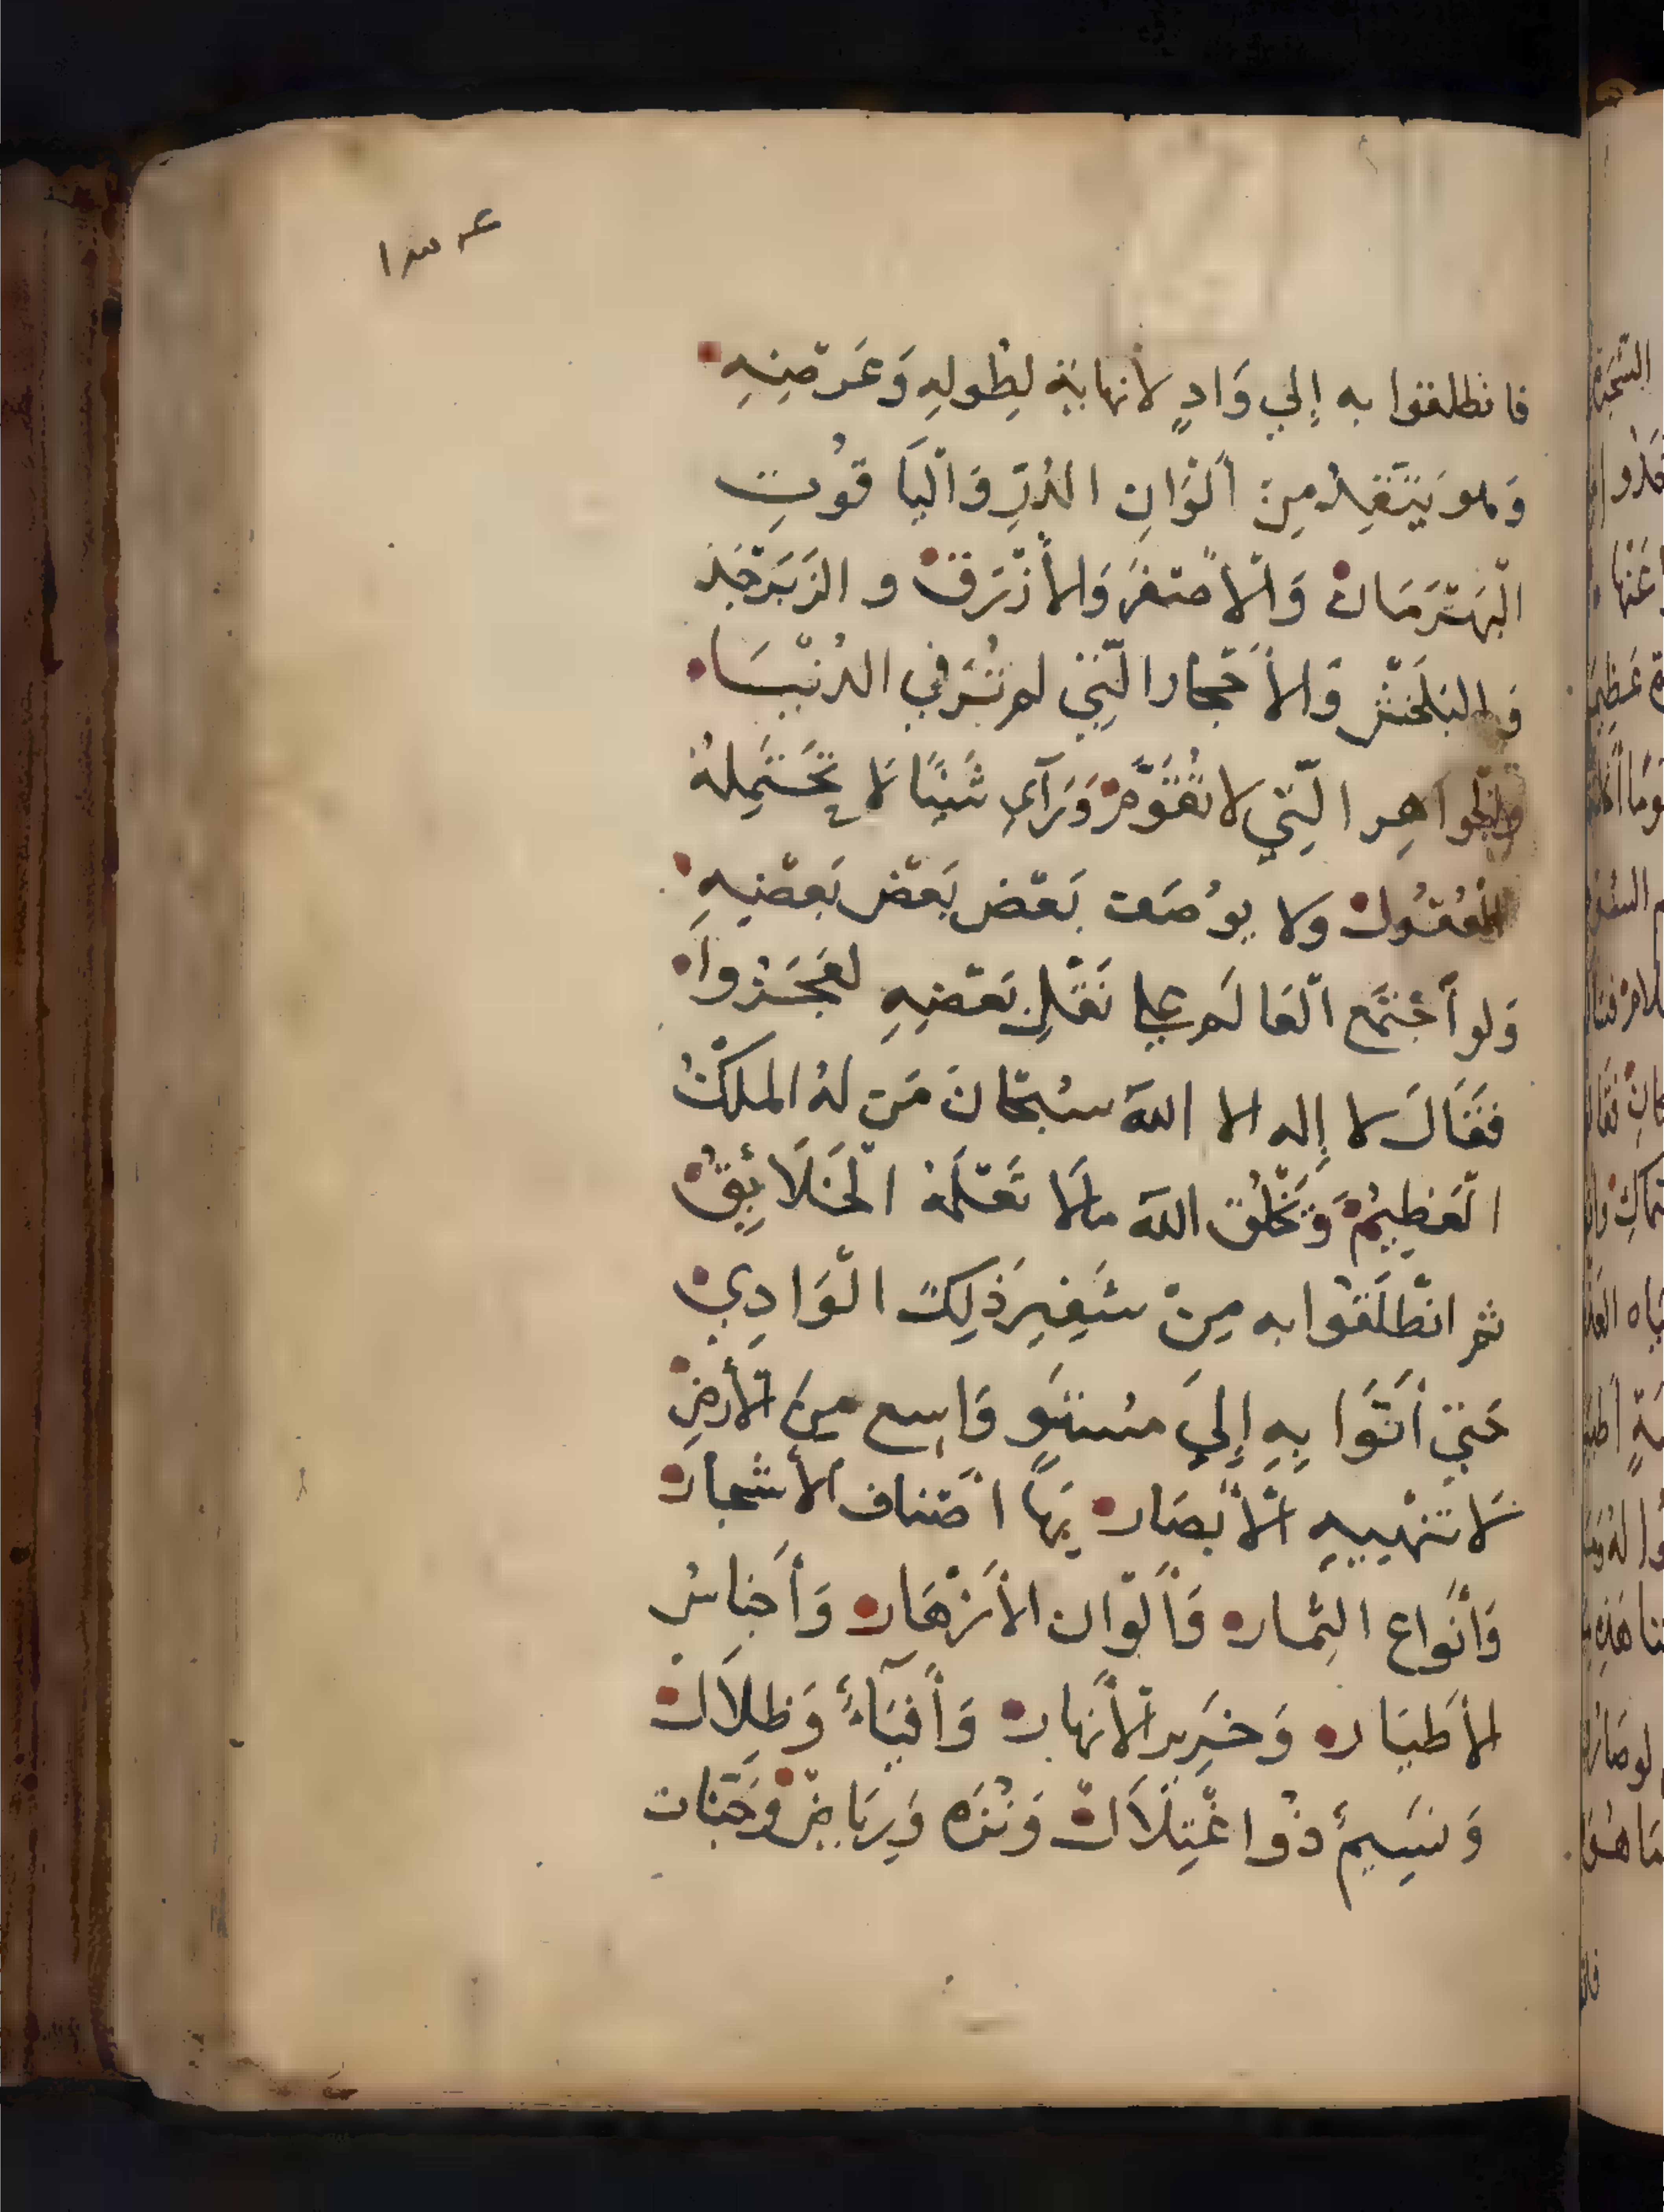 ١٣٤
فانطلقوا به إلي وَادٍ لأنهاية لِطُولِهِ وَعَرضِهِ
وَهو يَتَّقِدُ مِنْ ألْوَانِ الدُرِّ وَالْيَا قُوتِ
الْبَهْرَمَان وَالْأصْفرَ وَالأزْرَق و الزَبَرْجَد
وَالبَلَخْش وَالأَحْجار الَّتِي لم تُرَ في الدُنْيَا
والجواهِر الَّتِي لا تُقَوَّمْ وَرَآي شَيْئًا لَا تَحْتَمِلهُ
الْعُقُول ولا يوُصَف بَعْض بَعْض بَعْضِهِ
وَلو أجْتَمَع الْعَالَم علي نَقْلِ بَعْضِهِ لعَجَزُوا
فقَالَ لا إله الا اللهَ سُبْحَانَ مَن لهُ الملكُ
الْعَظِيمْ وَيَخْلُق اللهَ مالَا تَعْلَمهُ الْخَلَائِقْ
ثم انْطَلَقوا به مِنْ شَفِيرِ ذَلِكَ الْوَادِي
حَتي أتَوَا بِهِ إِلَي مسُتَوٍ وَاسِع مِنَ الأرضِ
لَا تَنْهِيهِ الْأبْصَار بِهَا اصْناف الأشجار
وَأنْواع الثِمار وَألْوان الأزْهَار وَأجناسُ
لأطْيَار وَخَرِير الأنهار وَأفيَآءٌ وَظِلَال
وَنَسِيمٌ ذُوا عْتِلَالْ وَنُزَه وَرِيَاضْ وَجَنّات